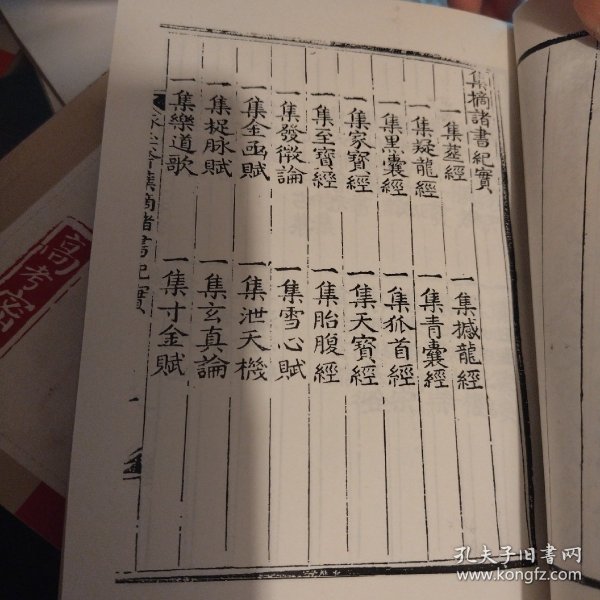 集摘諸書紀實
一集葬經
一集撼龍經
一集疑龍經
一集青囊經
一集黑囊經
一集狐首經
一集家寶經
一集天寶經
一集至寶經
一集胎腹經
一集發微論
一集雪心賦
一集金函賦
一集泄天機
一集捉脉賦
一集玄真論
一集樂道歌
一集寸金賦
摘諸書紀實
高考密
孔夫子旧书网
www.kongfz.com